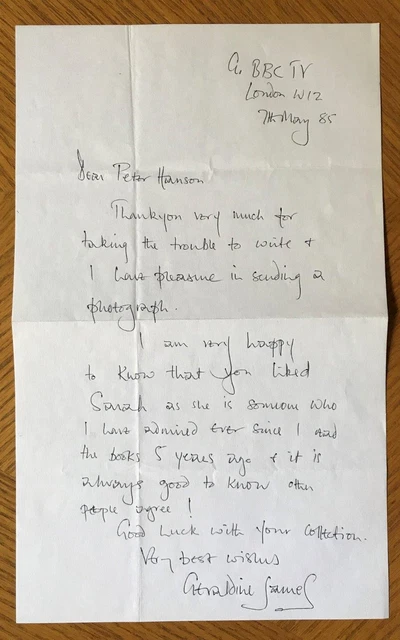 c/o BBC TV
London W12
7th May 85
Dear Peter Hanson
Thankyou very much for
taking the trouble to write &
I have pleasure in sending a
photograph.
I am very happy
to know that you liked
Sarah as she is someone who
I have admired ever since I read
the books 5 years ago & it is
always good to know other
people agree!
Good Luck with your collection.
Very best wishes
Geraldine James